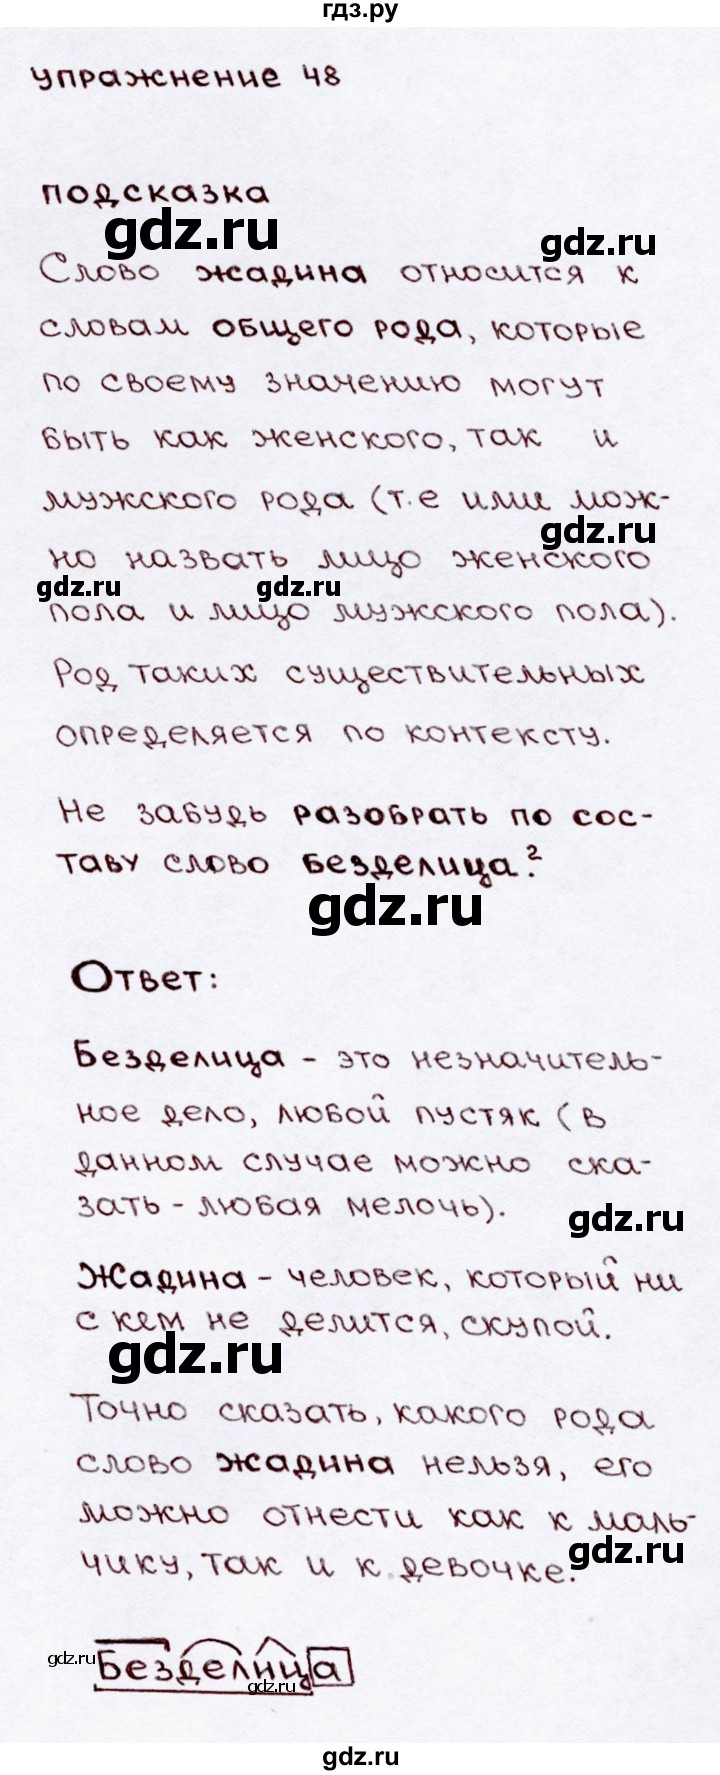 гдз.ру
упражнение 48
подсказка
gdz.ru
gdz.ru
Слово жадина относится к
словам общего рода, которые
по своему значению могут
быть как женского, так и
мужского рода (т.е ими мож-
gdz.ru
но назвать лицо женского
gdz.ru
gdz.ru
пола и лицо мужского пола).
Род таких существительных
определяется по контексту.
Не забудь разобрать по сос-
таву слово безделица.²
gdz.ru
Ответ:
Безделица - это незначитель-
ное дело, любой пустяк (в
данном случае можно ска-
зать - любая мелочь).
gdz.ru
Жадина - человек, который ни
с кем не делится, скупой.
gdz.ru
Точно сказать, какого рода
слово жадина нельзя, его
можно отнести как к маль-
gdz.ru
чику, так и к девочке.
gdz.ru
Безделица
gdz.ru
gdz.ru